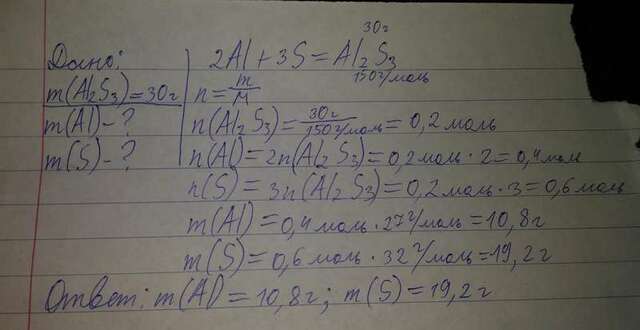 30г
Дано:
2Al + 3S = Al₂S₃
150г/моль
m(Al₂S₃) = 30г
n = m/M
m(Al) - ?
n(Al₂S₃) = 30г/150г/моль = 0,2 моль
m(S) - ?
n(Al) = 2n(Al₂S₃) = 0,2 моль · 2 = 0,4 мол
n(S) = 3n(Al₂S₃) = 0,2 моль · 3 = 0,6 моль
m(Al) = 0,4 моль · 27г/моль = 10,8г
m(S) = 0,6 моль · 32г/моль = 19,2г
Ответ: m(Al) = 10,8г; m(S) = 19,2г